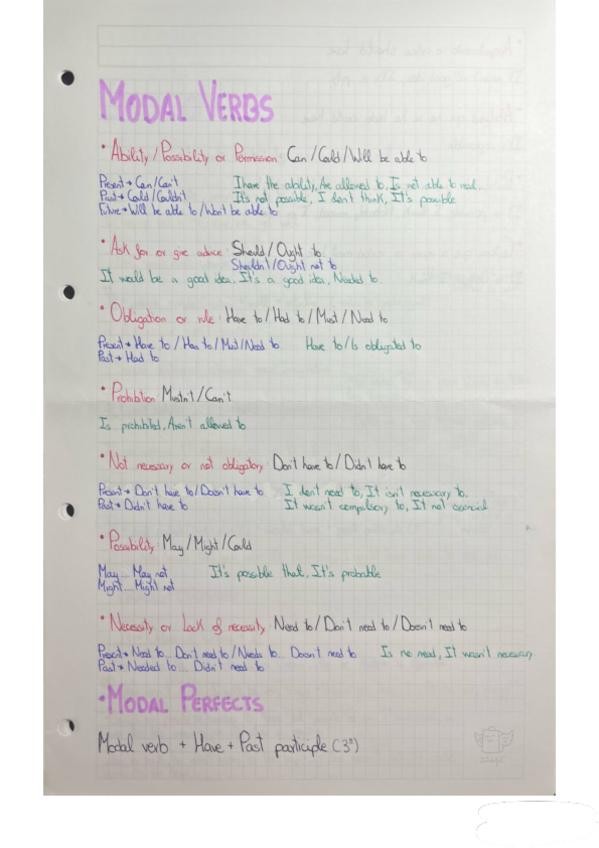 MODAL VERBS
• Ability/Possibility or Permission: Can/Could/Will be able to
Present → Can/Can't I have the ability, Are allowed to, Is not able to
Past → Could/Couldn't It's not possible, I don't think, It's possible
Future → Will be able to/Won't be able to
• Ask for or give advice: Should/Ought to
Shouldn't/Ought not to
It would be a good idea, It's a good idea, Needed to
• Obligation or rule: Have to/Had to/Must/Need to
Present → Have to/Has to/Must/Need to Have to/Is obligated to
Past → Had to
• Prohibition: Mustn't/Can't
Is prohibited, Aren't allowed to
• Not necessary or not obligatory: Don't have to/Didn't have to
Present → Don't have to/Doesn't have to I don't need to, It isn't necessary to
Past → Didn't have to It wasn't compulsory to, It not essencial
• Possibility: May/Might/Could
May... May not It's possible that, It's probable
Might... Might not
• Necessity or Lack of necessity: Need to/Don't need to/Doesn't need to
Present → Need to... Don't need to/Needs to... Doesn't need to Is no need, It wasn't necessary
Past → Needed to... Didn't need to
• MODAL PERFECTS
Modal verb + Have + Past participle (3ª)